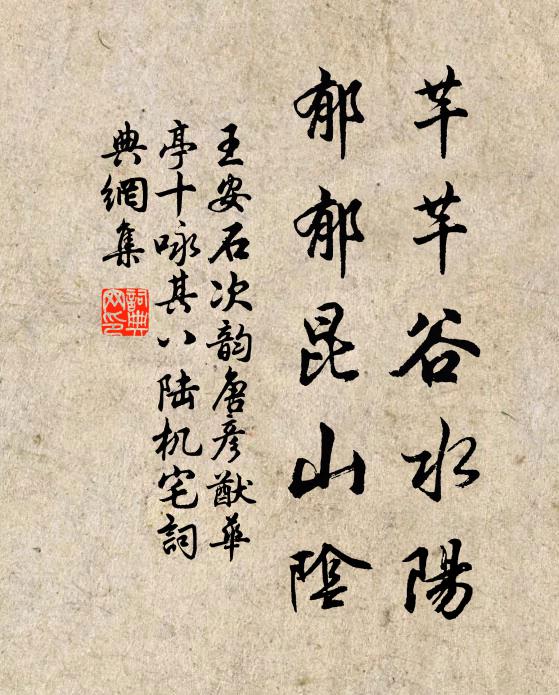 芊芊谷水陽
郁郁昆山陰
王安石次韵唐彥猷華
亭十咏其八陆机宅詞
典網集
詞典
网印